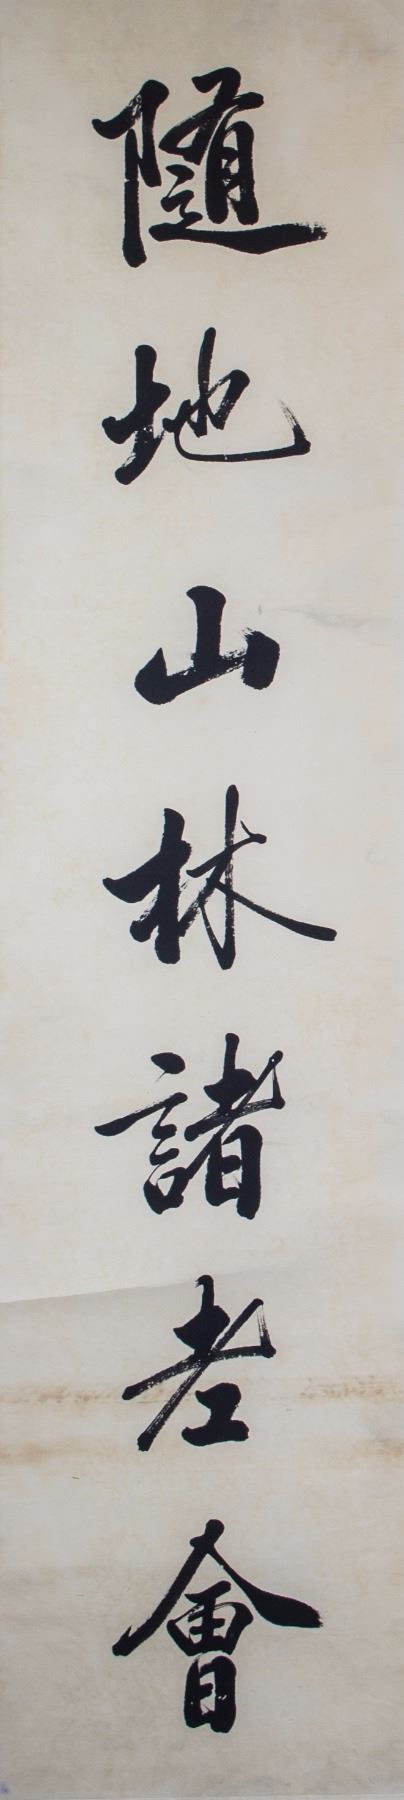 隨地山林諸老會